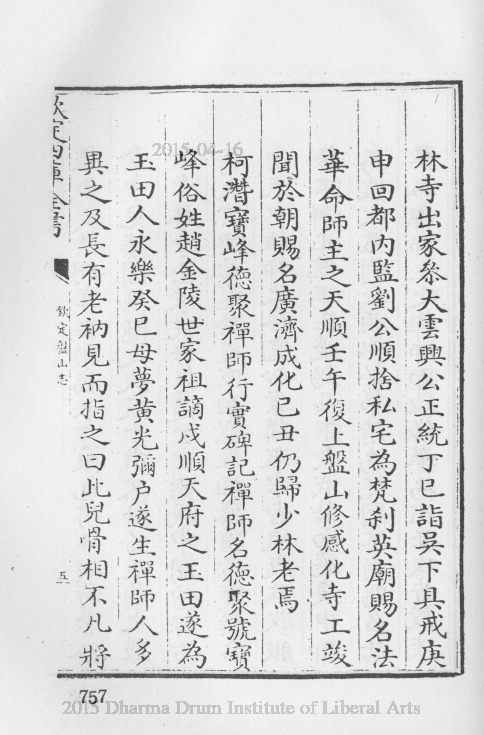 林寺出家叅大雲興公正統丁巳詣吳下具戒庚
申回都內監劉公順捨私宅為梵刹英廟賜名法
華命師主之天順壬午復上盤山修感化寺工竣
聞於朝賜名廣濟成化己丑仍歸少林老焉
柯潛寶峰德聚禪師行實碑記禪師名德聚號寶
峰俗姓趙金陵世家祖謫戍順天府之玉田遂為
玉田人永樂癸巳母夢黃光彌户遂生禪師人多
異之及長有老衲見而指之曰此兒骨相不凡將
欽定四庫全書
欽定盤山志
五
757
2015-04-16
2015 Dharma Drum Institute of Liberal Arts